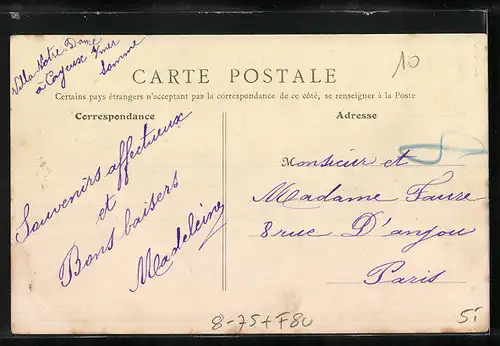 Villa Notre Dame
a Cayeux s/mer
Somme
10
CARTE POSTALE
Certains pays étrangers n'acceptant pas la correspondance de ce côté, se renseigner à la Poste
Correspondance
Adresse
Souvenirs affectueux
et
Bons baisers
Madeleine
Monsieur et
Madame Faure
8 rue D'anjou
Paris
8-75+F80